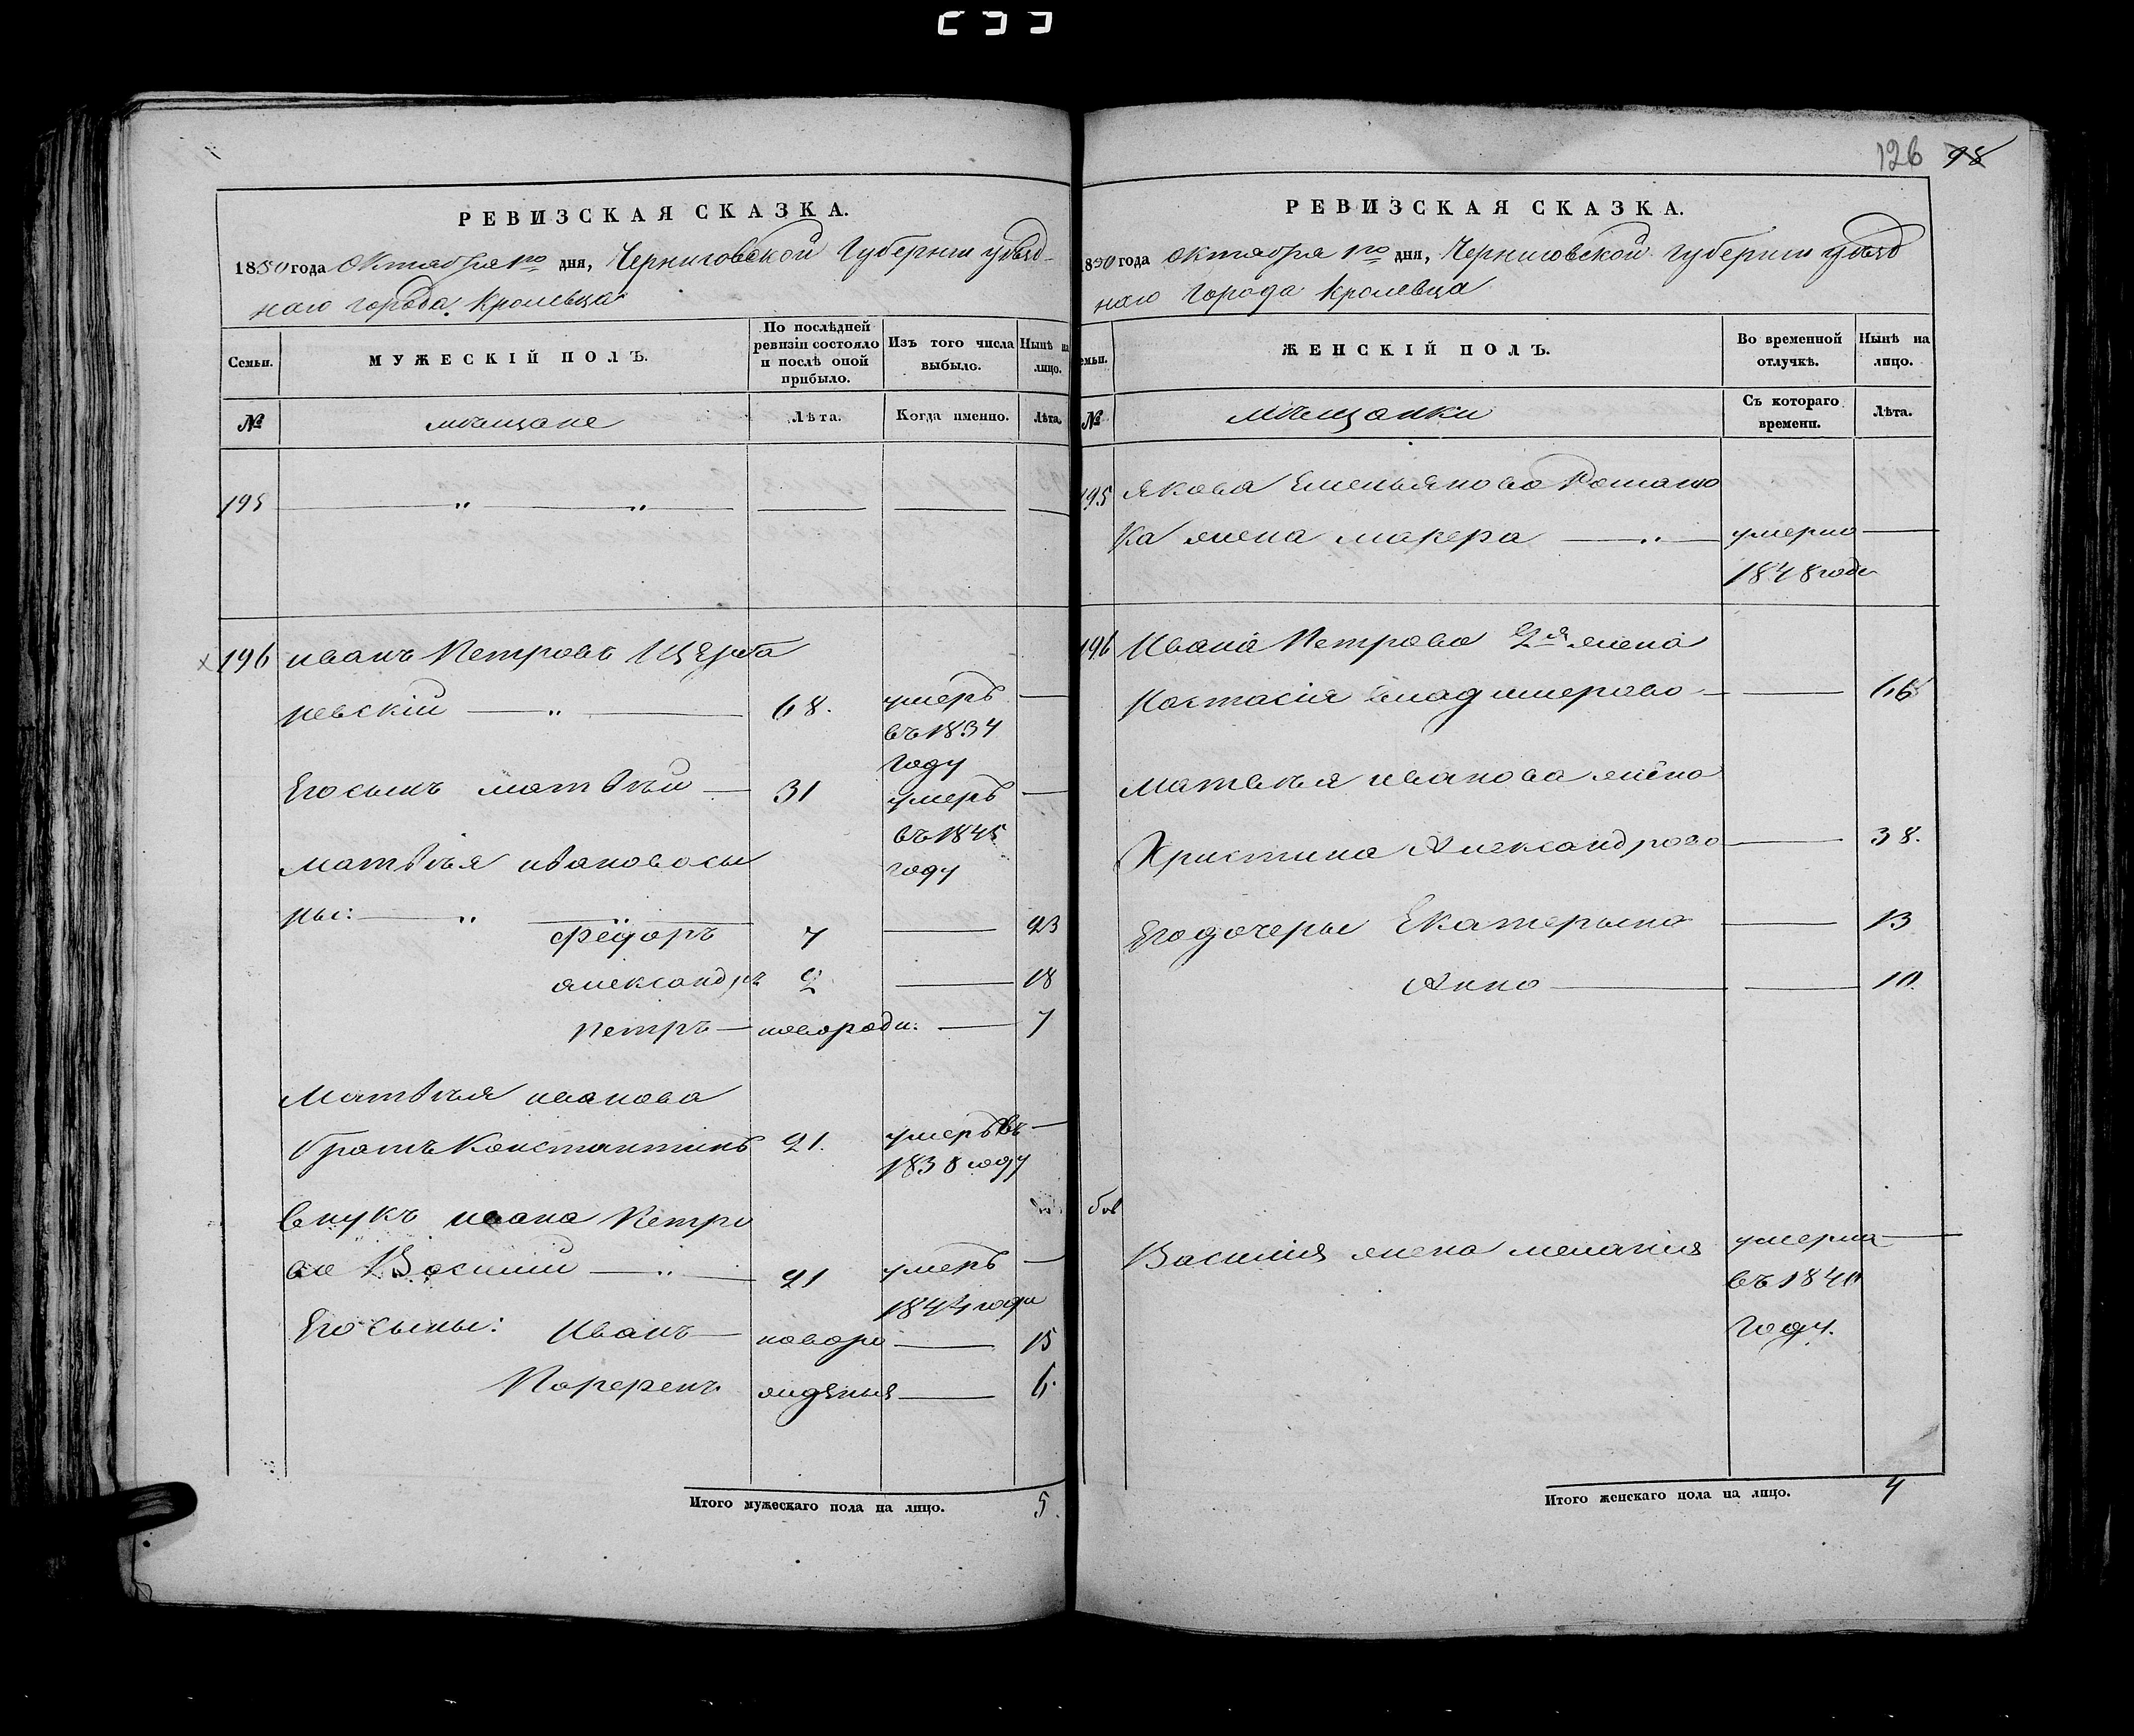 126 98
РЕВИЗСКАЯ СКАЗКА.
1850 года Октября 1го дня, Черниговской Губернии уѣзд-
наго города Кролевца
Семьи.
МУЖЕСКІЙ ПОЛЪ.
По послѣдней ревизіи состояло и послѣ оной прибыло.
Изъ того числа выбыло.
Нынѣ на лицо.
№
мѣщане
Лѣта.
Когда именно.
Лѣта.
195
196 иванъ Петровъ
невскій 68. умеръ
въ 1834
году
Его сынъ матвѣй 31 умеръ
въ 1845
году
матвѣя иванова сы
ны:
Фёдоръ 7 23
александръ 2 18
Петръ новорожд: 7
Матвѣя иванова
братъ Константинъ 21. умеръ въ
1838 году
внукъ ивана Петро
ва Василий 21 умеръ
1844 года
Его сыны: Иванъ новоро 15
жденыя 6.
Итого мужескаго пола на лицо. 5.
РЕВИЗСКАЯ СКАЗКА.
1850 года октября 1го дня, Черниговской губернии уѣзд
наго города Кролевца
Семьи.
ЖЕНСКІЙ ПОЛЪ.
Во временной отлучкѣ.
Нынѣ на лицо.
№
мѣщанки
Съ котораго времени.
Лѣта.
195 Якова Емельянова Роматю
ка жена умерла
1848 года
196 Ивана Петрова 2я жена
Настасія владимерова 66
Матвѣя иванова жена
Христина Александрова 38.
Его дочеры Екатерына 13
Анна 10.
Василия жена мелания умерла
въ 1840
году.
Итого женскаго пола на лицо. 4